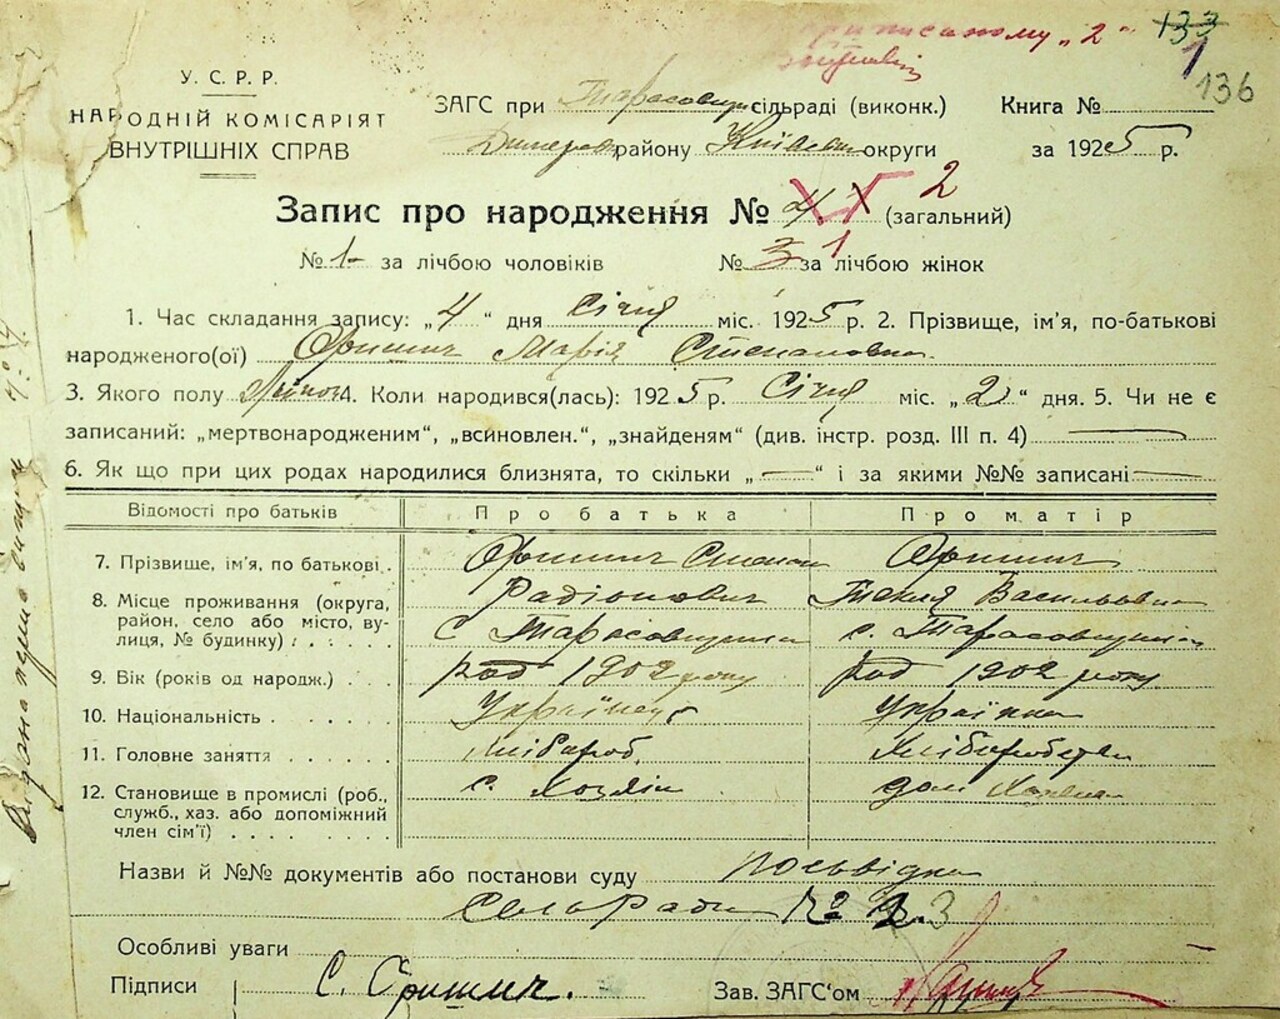 писаному „2"
133
1
136
У. С. Р. Р.
НАРОДНІЙ КОМІСАРІЯТ
ВНУТРІШНІХ СПРАВ
ЗАГС при Тарасовщин. сільраді (виконк.) Книга №
Димерськ району Київськ округи за 1925 р.
Запис про народження № 2 (загальний)
№ 1 за лічбою чоловіків № 3 1 за лічбою жінок
1. Час складання запису: „4" дня Січня міс. 1925 р. 2. Прізвище, ім'я, по-батькові
народженого(ої) Оришич Марія Степановна
3. Якого полу Жіноч 4. Коли народився(лась): 1925 р. Січня міс. „2" дня. 5. Чи не є
записаний: „мертвонародженим", „всиновлен.", „знайденям" (див. інстр. розд. III п. 4)
6. Як що при цих родах народилися близнята, то скільки „—" і за якими №№ записані
Відомості про батьків Про батька Про матір
7. Прізвище, ім'я, по батькові Оришич Степан Оришич
Радіонович Текля Васильовна
8. Місце проживання (округа,
район, село або місто, ву-
лиця, № будинку) с Тарасовщина с. Тарасовщина
9. Вік (років од народж.) род 1902 року род 1902 року
10. Національність Українець Українка
11. Головне заняття хлібороб. хліборобства
12. Становище в промислі (роб.,
служб., хаз. або допоміжний
член сім'ї) с. Хозяін дом
Назви й №№ документів або постанови суду посьвідка
сельради № 3
Особливі уваги
Підписи С. Оришич. Зав. ЗАГС'ом